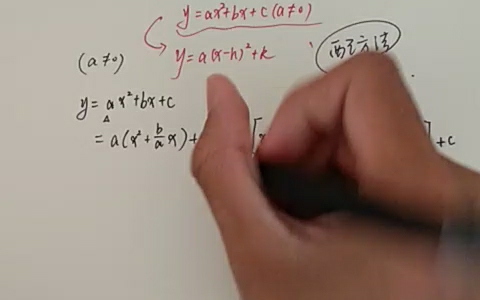 y=ax²+bx+c (a≠0)
y=a(x-h)²+k
配方法
(a≠0)
y=ax²+bx+c
=a(x²+\frac{b}{a}x)+ [ ]+c